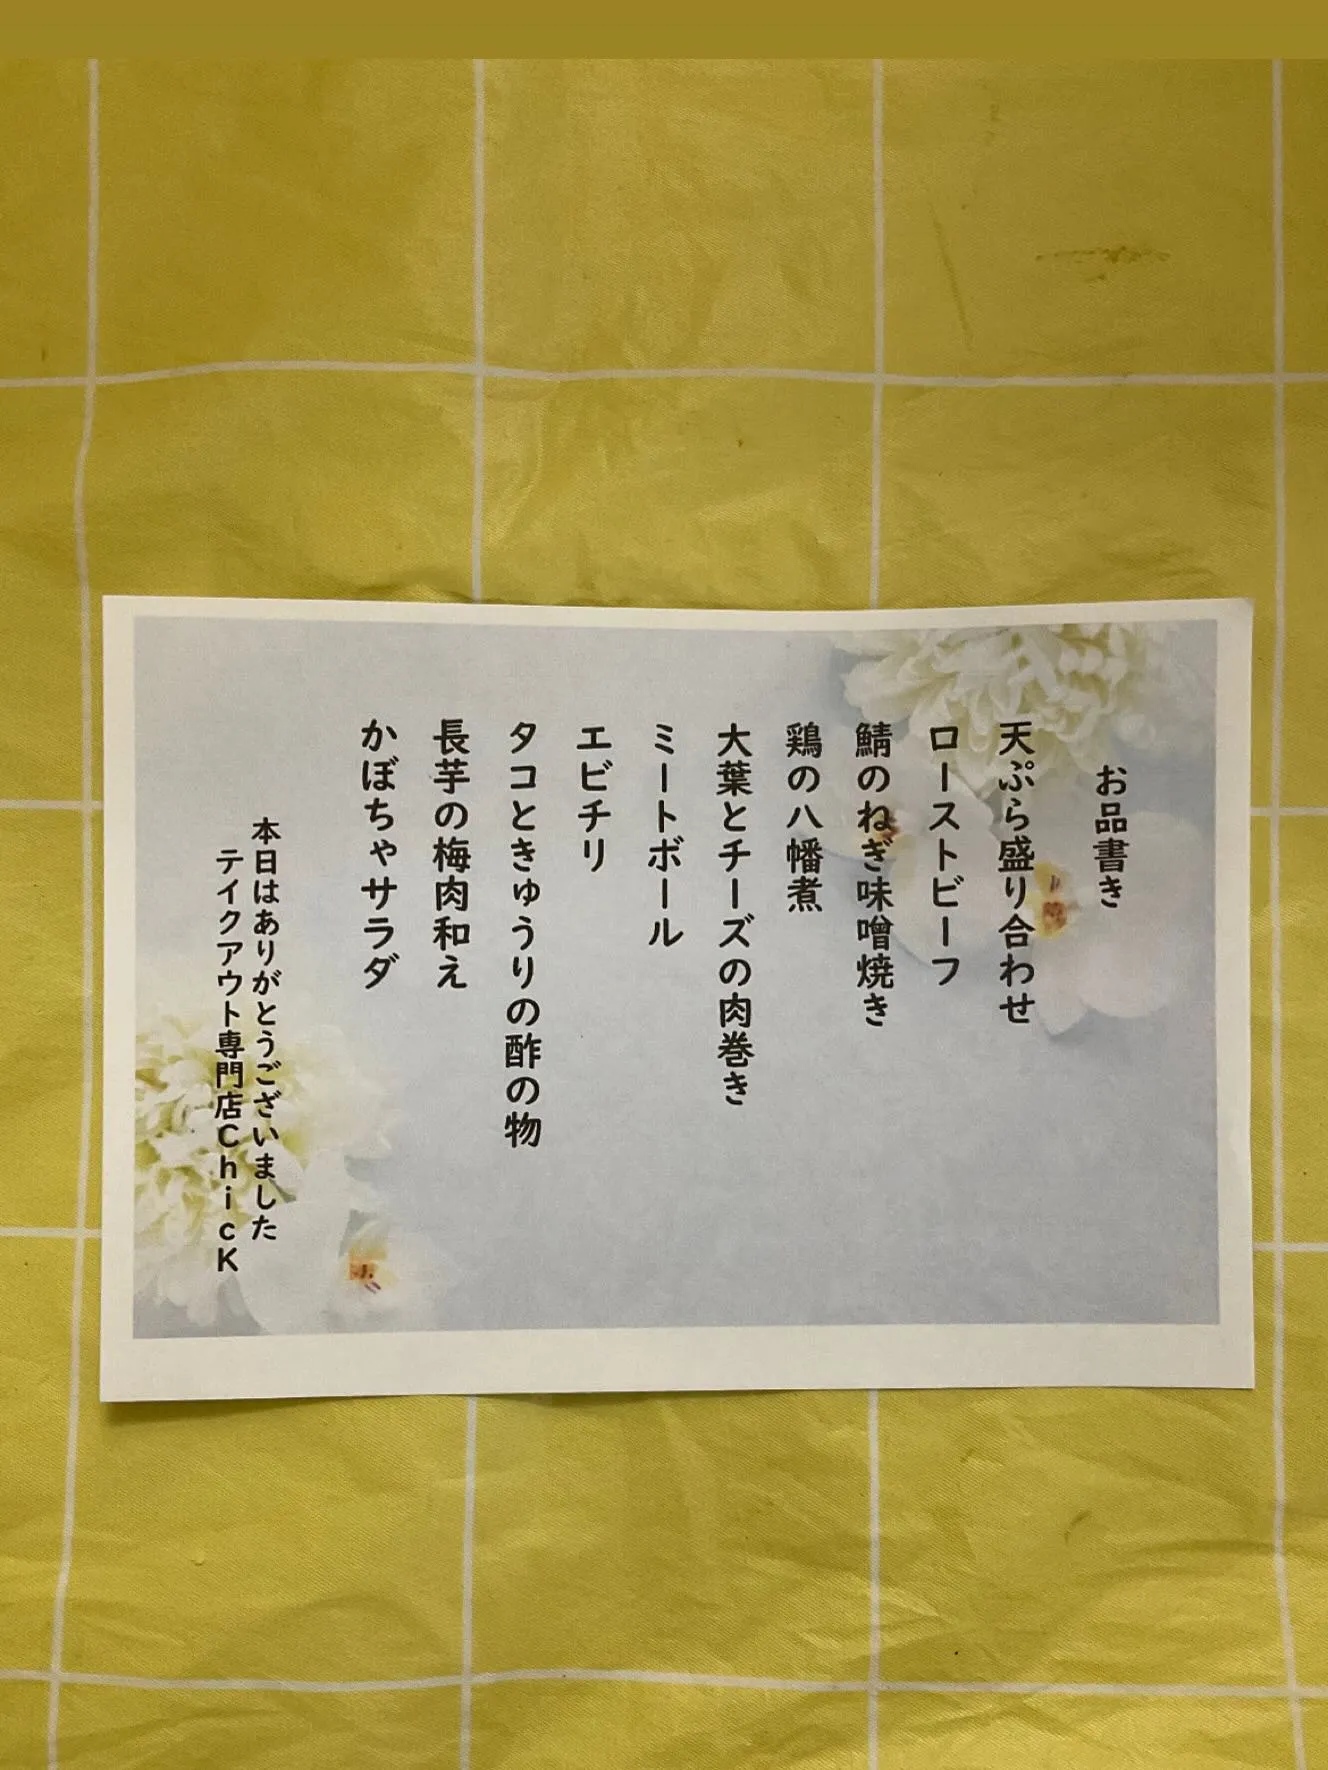 お品書き
天ぷら盛り合わせ
ローストビーフ
鯖のねぎ味噌焼き
鶏の八幡煮
大葉とチーズの肉巻き
ミートボール
エビチリ
タコときゅうりの酢の物
長芋の梅肉和え
かぼちゃサラダ
本日はありがとうございました
テイクアウト専門店ChicK